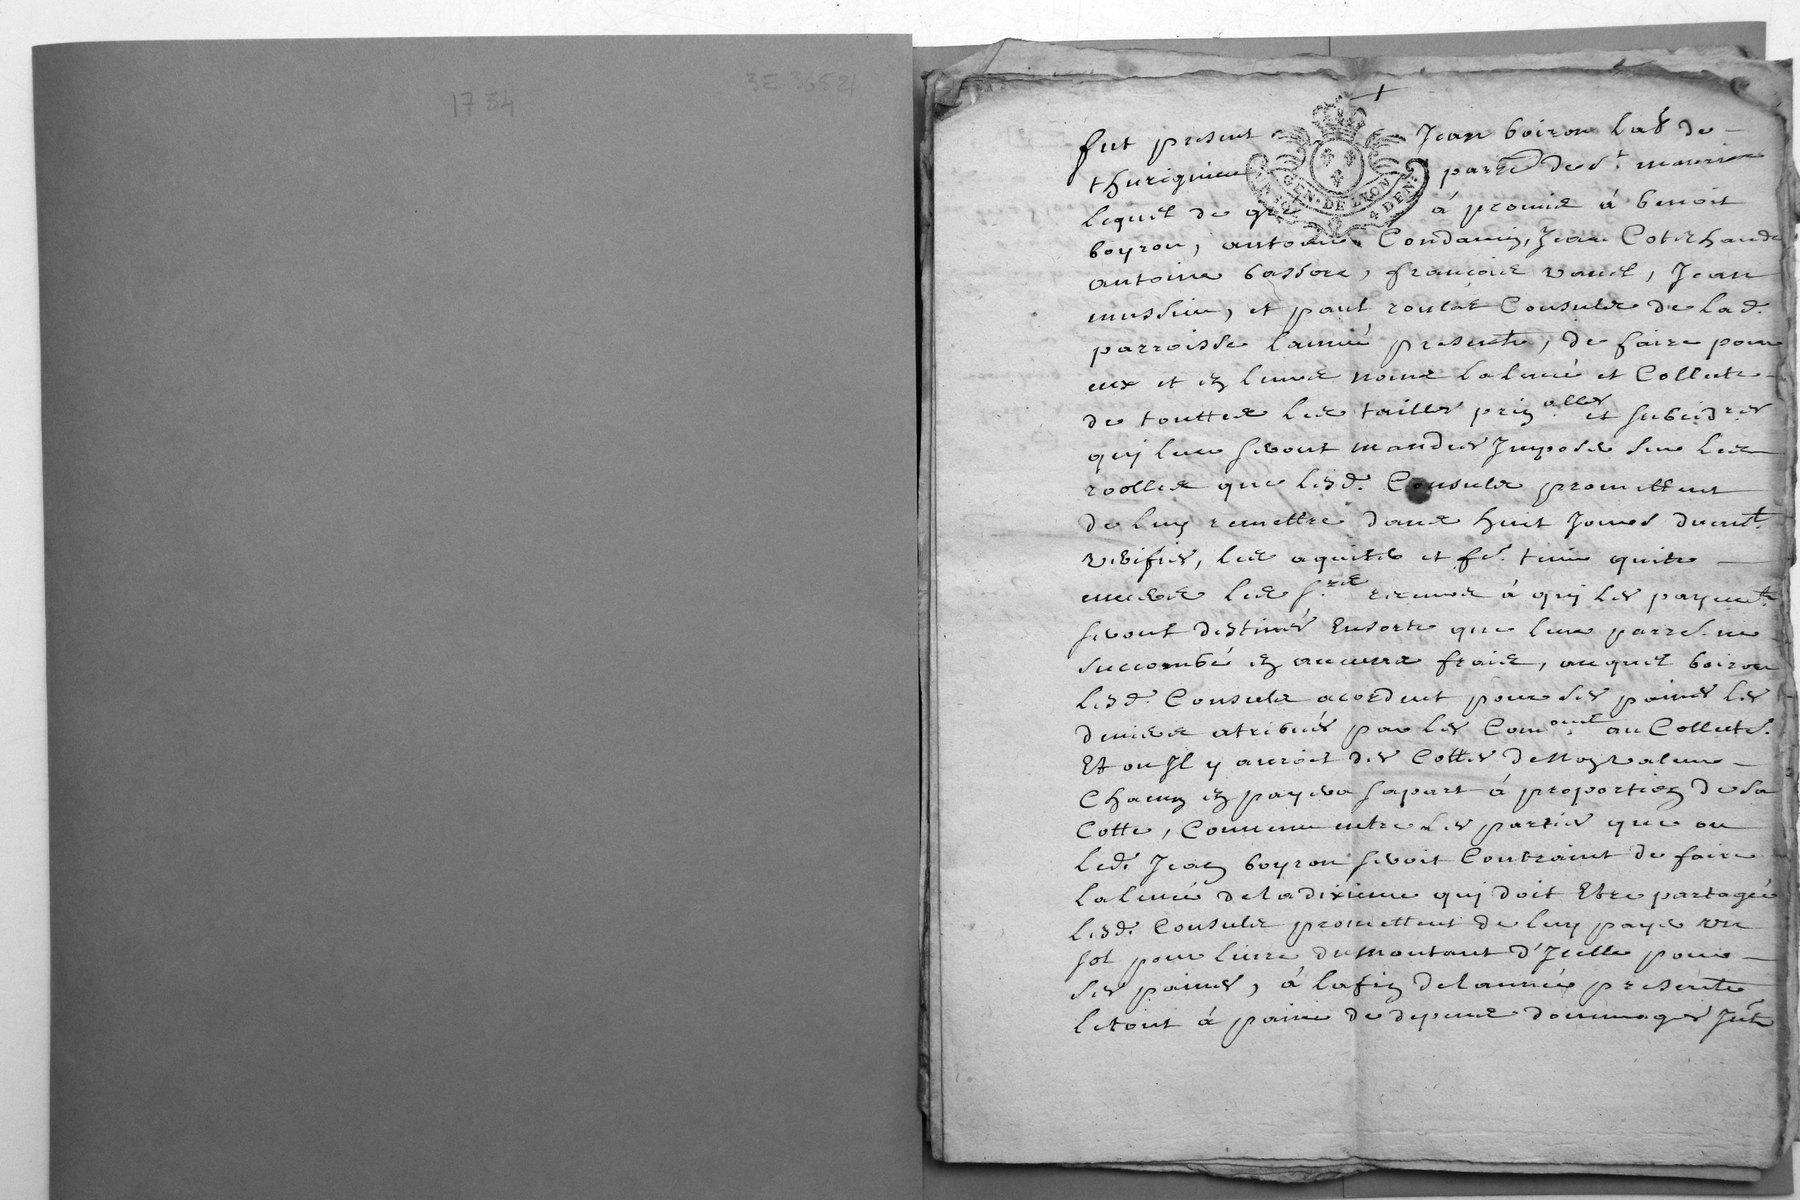 1734
3E 3652
fut present Jean boiron lab de
thurignieu parre de st maurice
lequel de gre à promis à benoit
boyron, antoine Condamin, Jean Cotechaude
antoine bassore, françois vanel, Jean
mussieu, et paul roulat Consuls de lad.
parroisse lannée presente, de faire pour
eux et en leurs noms la levée et Collecte
de touttes les tailles prinalles et subsidres
quy leur seront mandées Imposés sur les
roolles que lesd. Consuls promettent
de luy remettre dans huit Jours duemt.
verifiés, les aquiter et fe. tenir quite
envers les srs receveurs à quy les payemts
seront destinés Ensorte que leur parre. ne
succombe en aucuns frais, auquel boiron
lesd. Consuls acordent pour ses paines les
deniers atribués par les Comons au Collecte.
Et ou Il y auroit des Cottes de Non valeur
Chacun en payera sa part à proportion de sa
Cotte, Convenu entre les parties que ou
led. Jean boyron seroit Contraint de faire
la levée de la dixieme qui doit Etre partagée
lesd. Consuls promettent de luy payer un
sol pour livre du montant d'Icelle pour
ses paines, à la fin de lannée presente
le tout à paine de depens dommages Jnts
GEN. DE LYON
4 DEN.